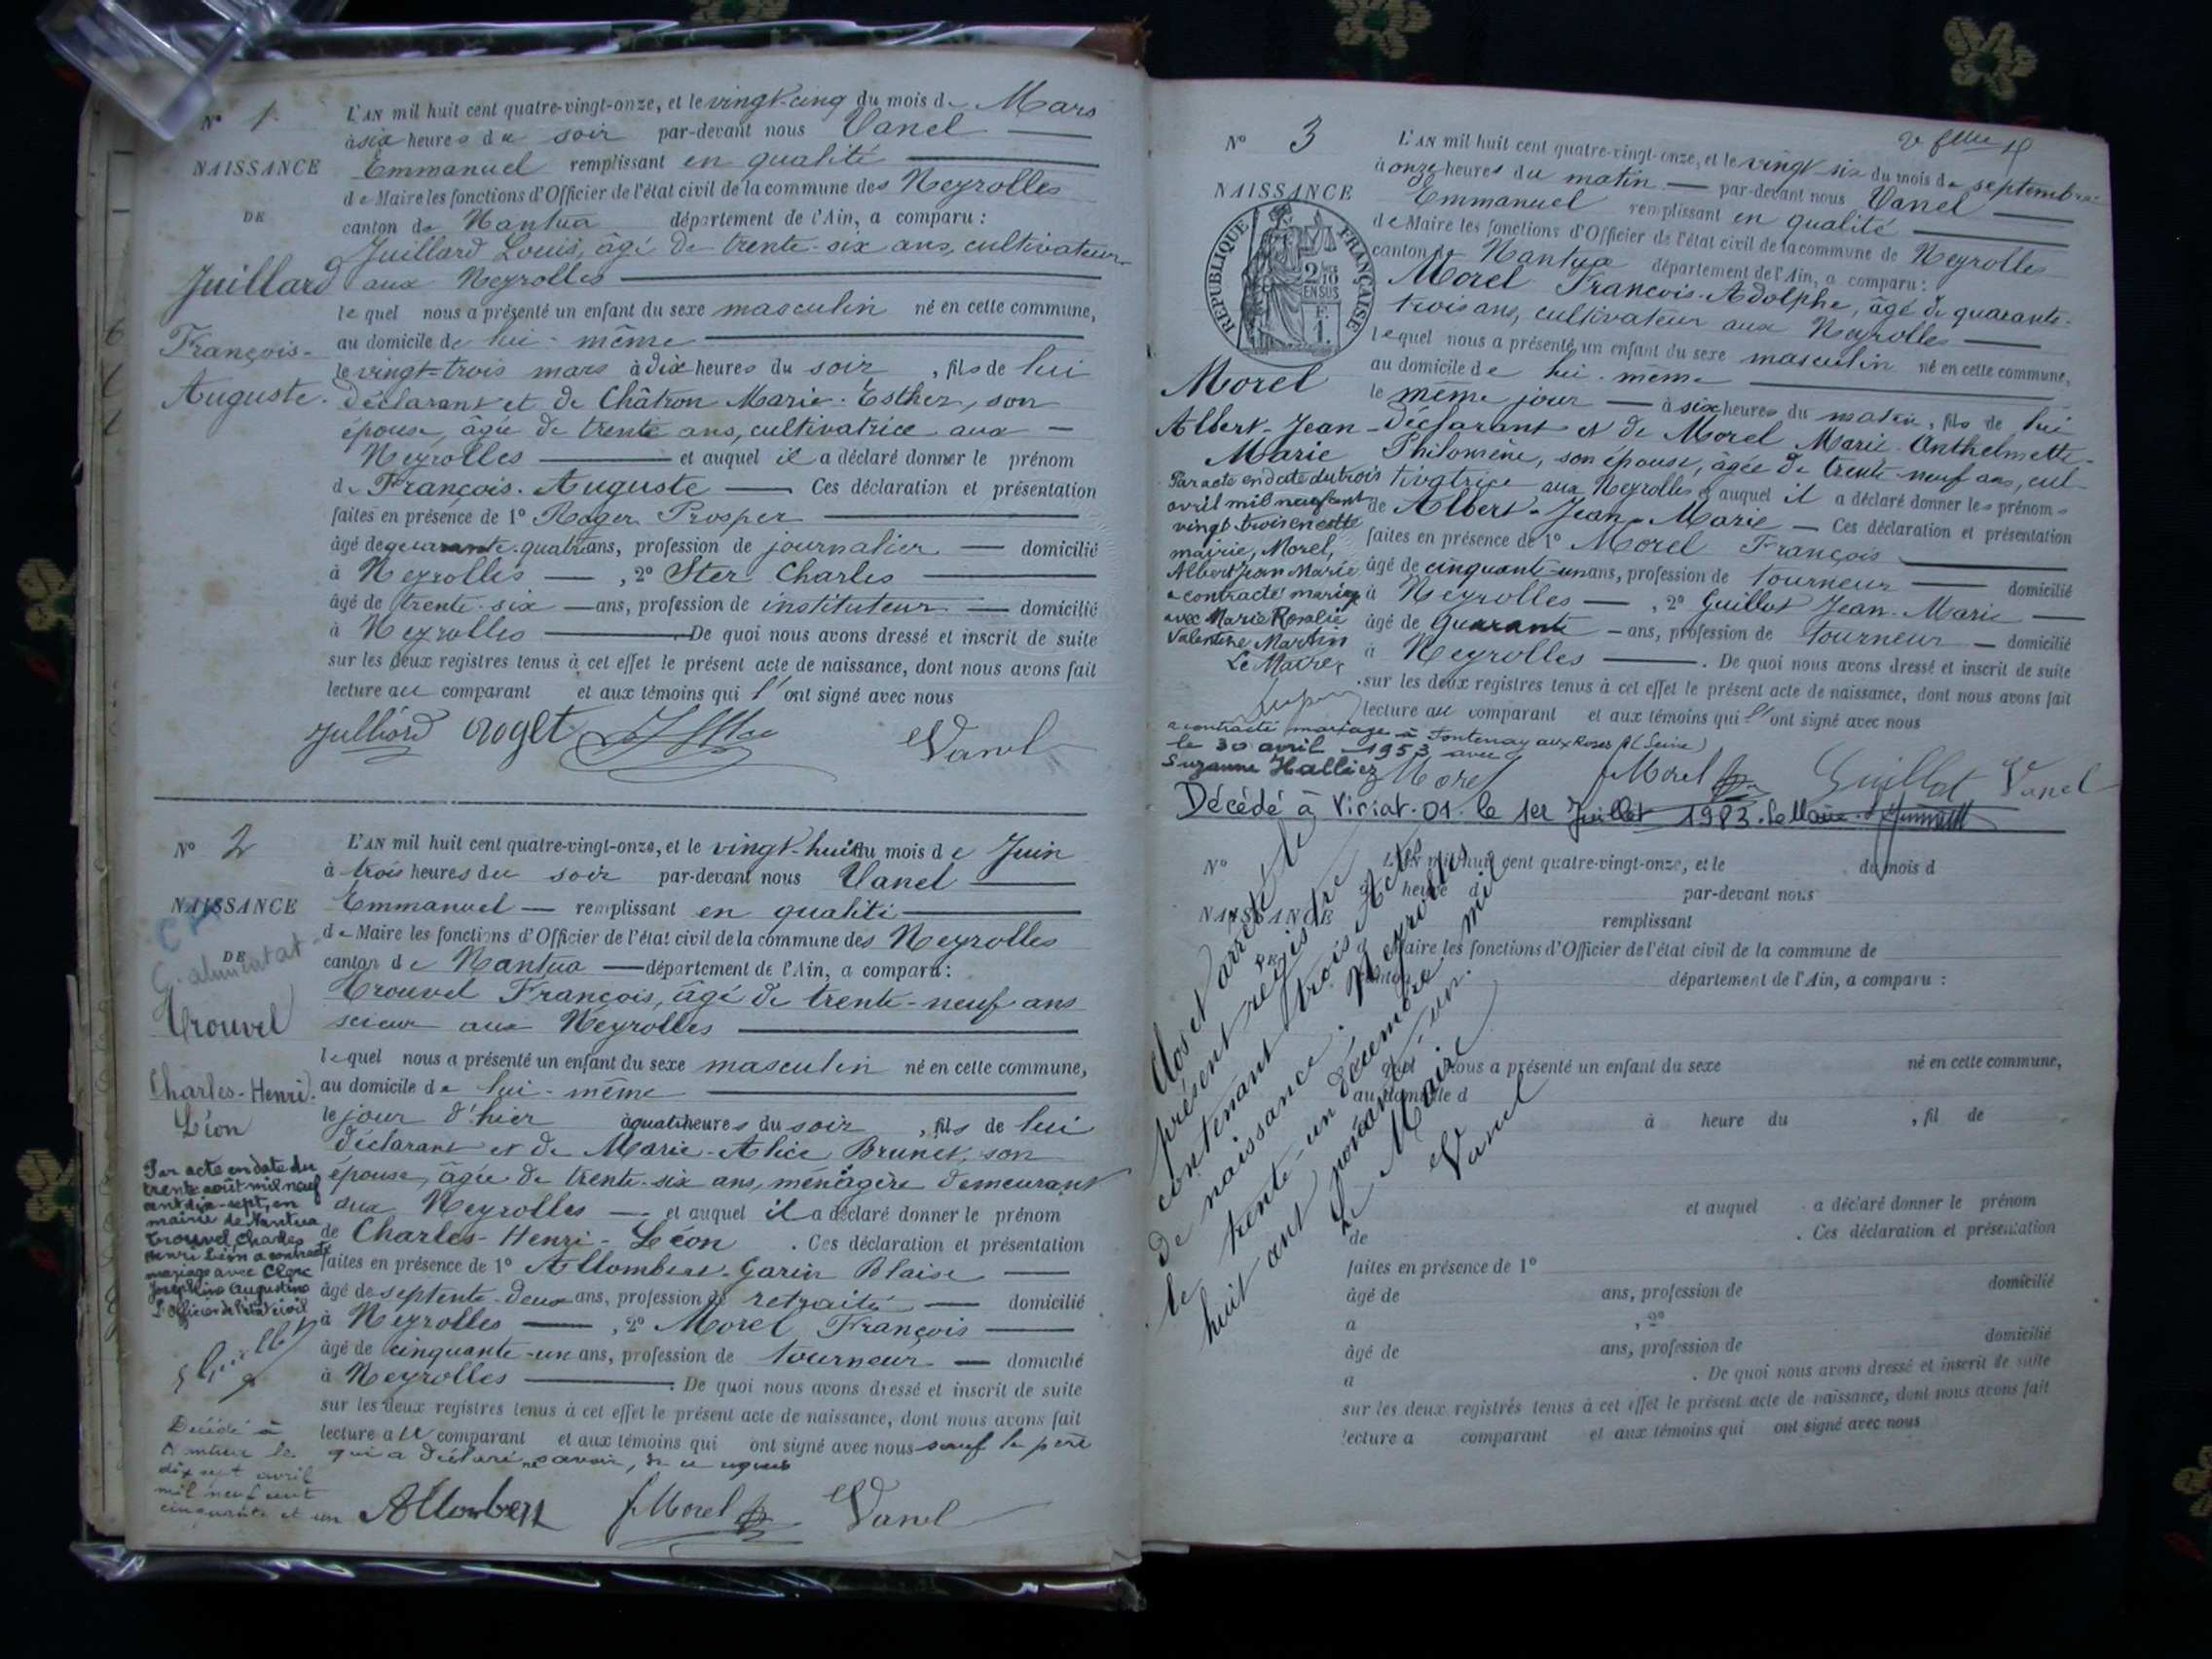 N° 1
NAISSANCE
DE
Juillard
François-
Auguste.
L'AN mil huit cent quatre-vingt-onze, et le vingt-cinq du mois de Mars
à six heures du soir par-devant nous Vanel
Emmanuel remplissant en qualité
de Maire les fonctions d'Officier de l'état civil de la commune des Neyrolles
canton de Nantua département de l'Ain, a comparu :
Juillard Louis, âgé de trente-six ans, cultivateur
aux Neyrolles
lequel nous a présenté un enfant du sexe masculin né en cette commune,
au domicile de lui-même
le vingt-trois mars à dix heures du soir, fils de lui
déclarant et de Châtron Marie-Esther, son
épouse, âgée de trente ans, cultivatrice aux
Neyrolles et auquel il a déclaré donner le prénom
de François-Auguste Ces déclaration et présentation
faites en présence de 1° Roger Prosper
âgé de quarante-quatre ans, profession de journalier domicilié
à Neyrolles , 2° Ster Charles
âgé de trente-six ans, profession de instituteur domicilié
à Neyrolles . De quoi nous avons dressé et inscrit de suite
sur les deux registres tenus à cet effet le présent acte de naissance, dont nous avons fait
lecture au comparant et aux témoins qui l'ont signé avec nous
Julliard Roget Vanel
N° 2
NAISSANCE
DE
G. alimentat
Trouvel
Charles-Henri
Léon
Par acte en date du
trente août mil neuf
cent dix-sept, en
mairie de Nantua
Trouvel Charles
Henri Léon a contracté
mariage avec Clerc
Joséphine Augustine
L'officier de l'état civil
Décédé à
le
dix sept avril
mil neuf cent
cinquante et un
L'AN mil huit cent quatre-vingt-onze, et le vingt-huit du mois de Juin
à trois heures du soir par-devant nous Vanel
Emmanuel remplissant en qualité
de Maire les fonctions d'Officier de l'état civil de la commune des Neyrolles
canton de Nantua département de l'Ain, a comparu :
Trouvel François, âgé de trente-neuf ans
scieur aux Neyrolles
lequel nous a présenté un enfant du sexe masculin né en cette commune,
au domicile de lui-même
le jour d'hier à quatre heures du soir, fils de lui
déclarant et de Marie-Alice Brunet, son
épouse, âgée de trente-six ans, ménagère demeurant
aux Neyrolles et auquel il a déclaré donner le prénom
de Charles-Henri-Léon . Ces déclaration et présentation
faites en présence de 1° Allombert-Garin Blaise
âgé de septente-deux ans, profession de retraité domicilié
à Neyrolles , 2° Morel François
âgé de cinquante-un ans, profession de tourneur domicilié
à Neyrolles . De quoi nous avons dressé et inscrit de suite
sur les deux registres tenus à cet effet le présent acte de naissance, dont nous avons fait
lecture au comparant et aux témoins qui ont signé avec nous sauf le père
qui a déclaré ne savoir, de ce requis
Allombert f Morel Vanel
2e flle
N° 3
NAISSANCE
REPUBLIQUE FRANÇAISE
2/10
EN SUS
Morel
Albert-Jean-
Marie
Par acte en date du trois
avril mil neuf cent
vingt trois en cette
mairie, Morel,
Albert Jean Marie
a contracté mariage
avec Marie Rosalie
Valentine Martin
Le Maire,
a contracté mariage à Fontenay aux Roses (Seine)
le 30 avril 1953 avec
Suzanne Halliez
L'AN mil huit cent quatre-vingt-onze, et le vingt-six du mois de septembre
à onze heures du matin par-devant nous Vanel
Emmanuel remplissant en qualité
de Maire les fonctions d'Officier de l'état civil de la commune de Neyrolles
canton de Nantua département de l'Ain, a comparu :
Morel François-Adolphe, âgé de quarante-
trois ans, cultivateur aux Neyrolles
lequel nous a présenté un enfant du sexe masculin né en cette commune,
au domicile de lui-même
le même jour à six heures du matin, fils de lui
déclarant et de Morel Marie-Anthelmette-
Philomène, son épouse, âgée de trente-neuf ans, cul-
tivatrice aux Neyrolles et auquel il a déclaré donner les prénoms
de Albert-Jean-Marie Ces déclaration et présentation
faites en présence de 1° Morel François
âgé de cinquante-un ans, profession de tourneur domicilié
à Neyrolles , 2° Guillot Jean-Marie
âgé de quarante ans, profession de tourneur domicilié
à Neyrolles . De quoi nous avons dressé et inscrit de suite
sur les deux registres tenus à cet effet le présent acte de naissance, dont nous avons fait
lecture au comparant et aux témoins qui l'ont signé avec nous
Morel f Morel Guillot Vanel
Décédé à Viriat. 01. le 1er Juillet 1983. Le Maire
N°
NAISSANCE
DE
L'AN mil huit cent quatre-vingt-onze, et le du mois d
à heure d par-devant nous
remplissant
Maire les fonctions d'Officier de l'état civil de la commune de
canton département de l'Ain, a comparu :
quel nous a présenté un enfant du sexe né en cette commune,
au domicile d
à heure du , fil de
et auquel a déclaré donner le prénom
de . Ces déclaration et présentation
faites en présence de 1°
âgé de ans, profession de domicilié
à , 2°
âgé de ans, profession de domicilié
à . De quoi nous avons dressé et inscrit de suite
sur les deux registres tenus à cet effet le présent acte de naissance, dont nous avons fait
lecture a comparant et aux témoins qui ont signé avec nous
Clos et arrêté le
présent registre
contenant trois Actes
de naissance. Neyrolles
le trente-un décembre mil
huit cent nonante-un.
Le Maire
Vanel